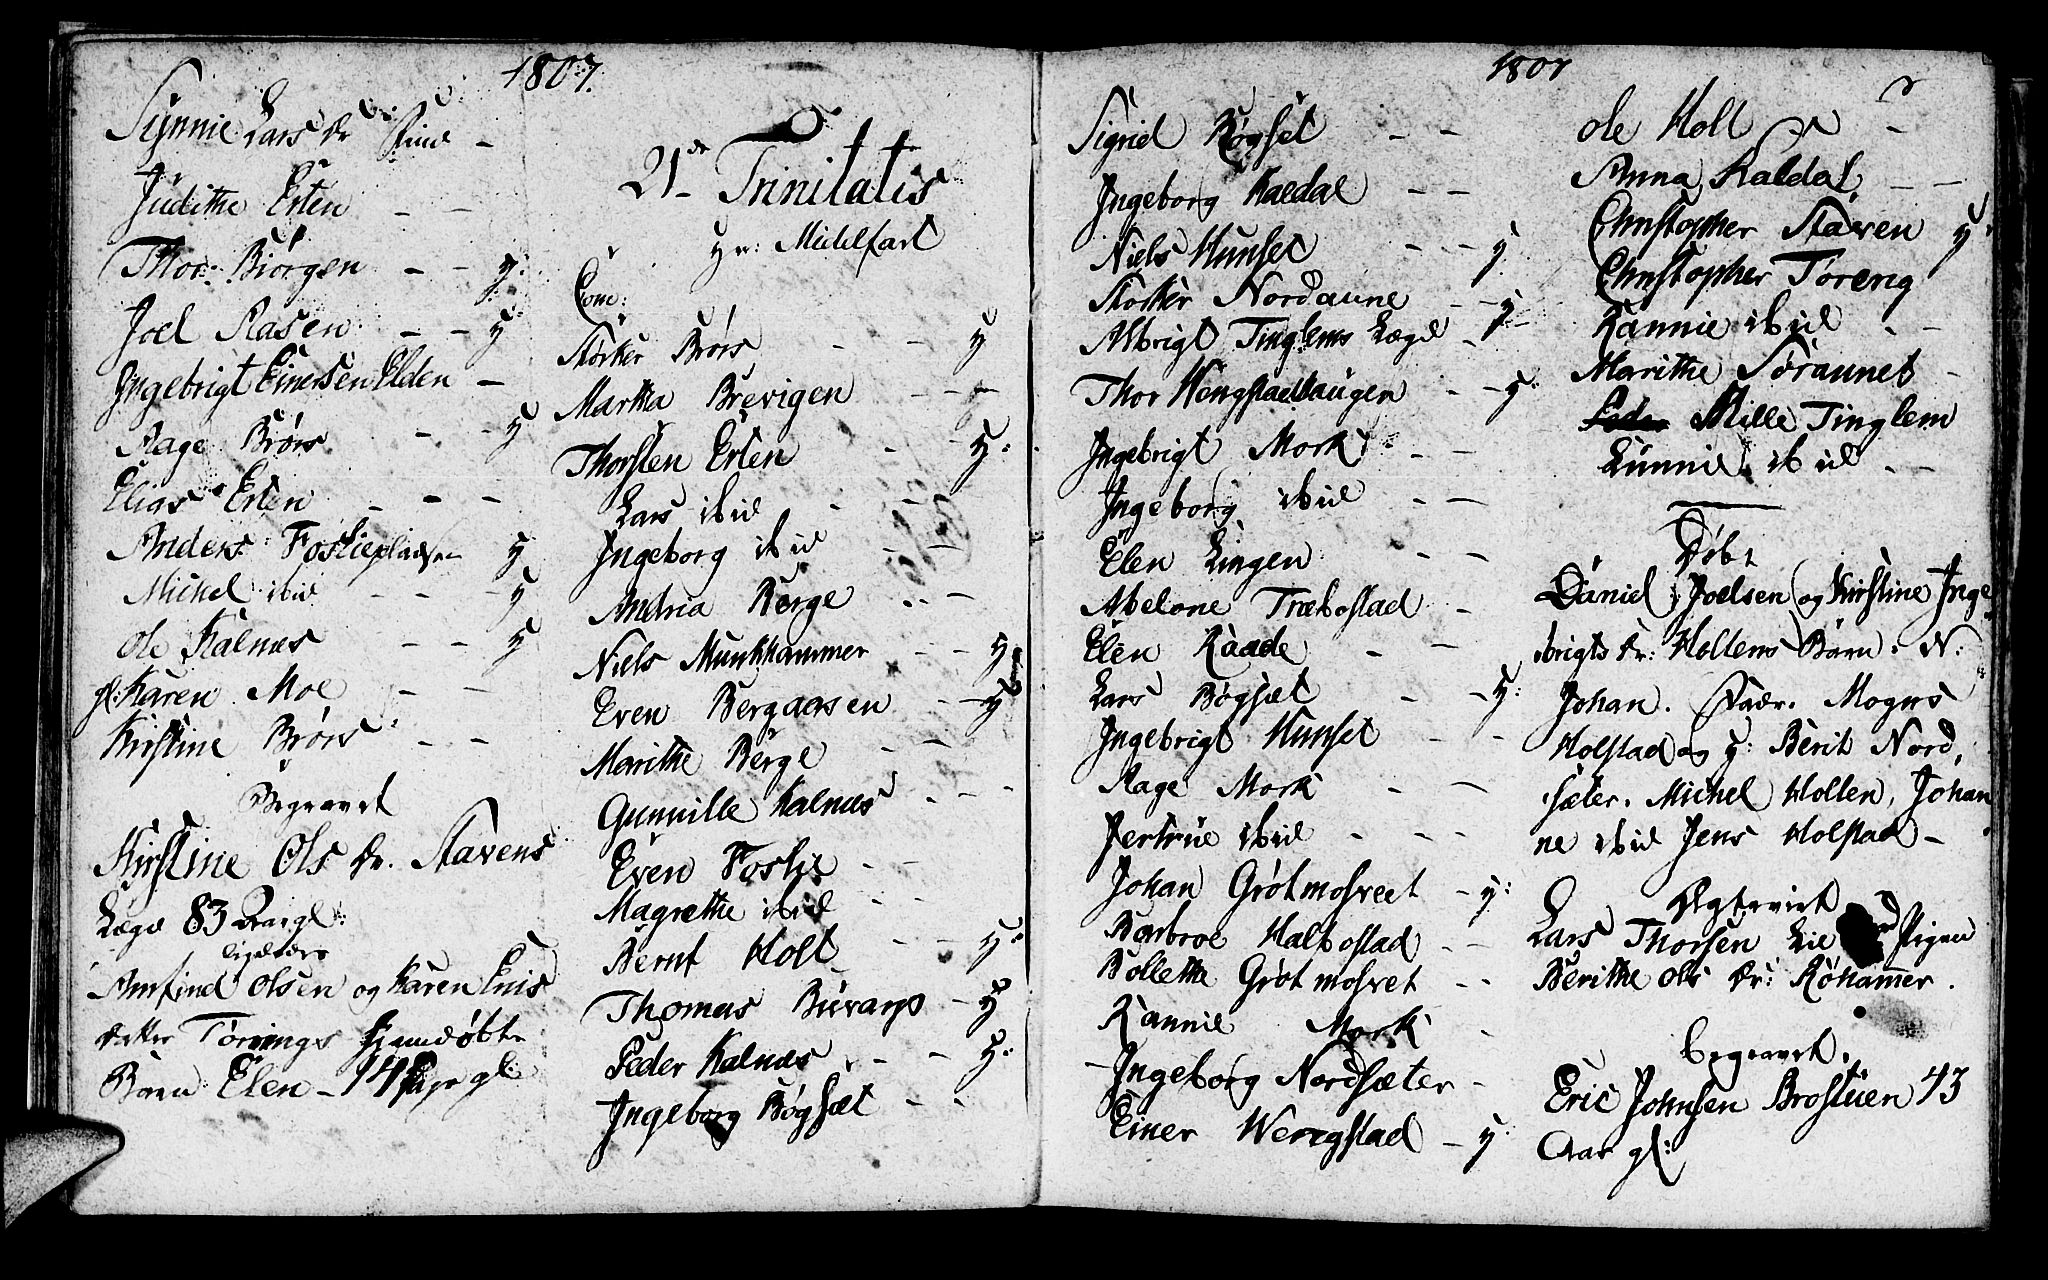 1807.
Synnie Lars Dr
Judithe Erten - -
Thor Biörgen - - y:
Joel Aasen - - y
Ingebrigt Einersen Elden -
Aage Brörs - - y
Elias Erten - - -
Anders Fossliepladsen y
Michel ibid - - y
Ole Kalnæs - - y
gl: Karen Moe - -
Kirstine Brörs - -
Begravet
Kirstine Ols Dr. Stavens
Lægd 83 Aar gl:
ligeledes
Arnfind Olsen og Karen Enis
datter Törings hjemdöbte
Barn Elen - 14 Dage gl:
21de Trinitatis
Hr: Midelfart
Com:
Störker Brörs - - y
Martha Brevigen - - -
Thorsten Erten - - y:
Lars ibid - - -
Ingeborg ibid - -
Andria Berge - - -
Niels Munkhammer - - y
Even Bergaasen - - y
Marithe Berge - - -
Gunnille Kalnæs - - -
Even Foslie - -
Magrethe ibid - -
Bernt Holt - - y:
Thomas Buvarp - y
Peder Kalnæs - - y:
Ingeborg Bögsæt - -
1807
Sigrid Bögset - -
Ingeborg Kaldal - -
Niels Hunset - - y
Störker Nordaune - - y
Albrigt Tinglems Lægd - y -
Thor Wengstadhaugen - - y:
Ingebrigt Mork - -
Ingeborg ibid - -
Elen Lingen - -
Abelone Træbostad -
Elen Raade - -
Lars Bögsæt - - y:
Ingebrigt Hunset - -
Aage Mork - - -
Jertrue ibid - - -
Johan Grötmosveet - y:
Barbroe Halbostad - -
Bollethe Grötmosvet - -
Rannie Mork -
- Ingeborg Nordsæter -
Einer Wengstad - y:
Ole Holl -
Anna Kaldal - -
Christopher Staven y:
Christopher Töreng
Rannie ibid - -
Marithe Söraunet -
Mille Tinglem
Lünnie ibid - -
Döbt
Daniel Joelsen og Kirstine Inge
brigts Dr: Holtens Barn. N:
Johan. Fadr. Mogns
Holstad og y: Berit Nord,
sæter. Michel Hollen, Johan
ne ibid Jens Holstad -
Ægteviet
Lars Thorsen Lie Pigen
Berithe Ols Dr: Röhammer.
begravet.
Eric Johnsen Brostuen 43
Aar gl: